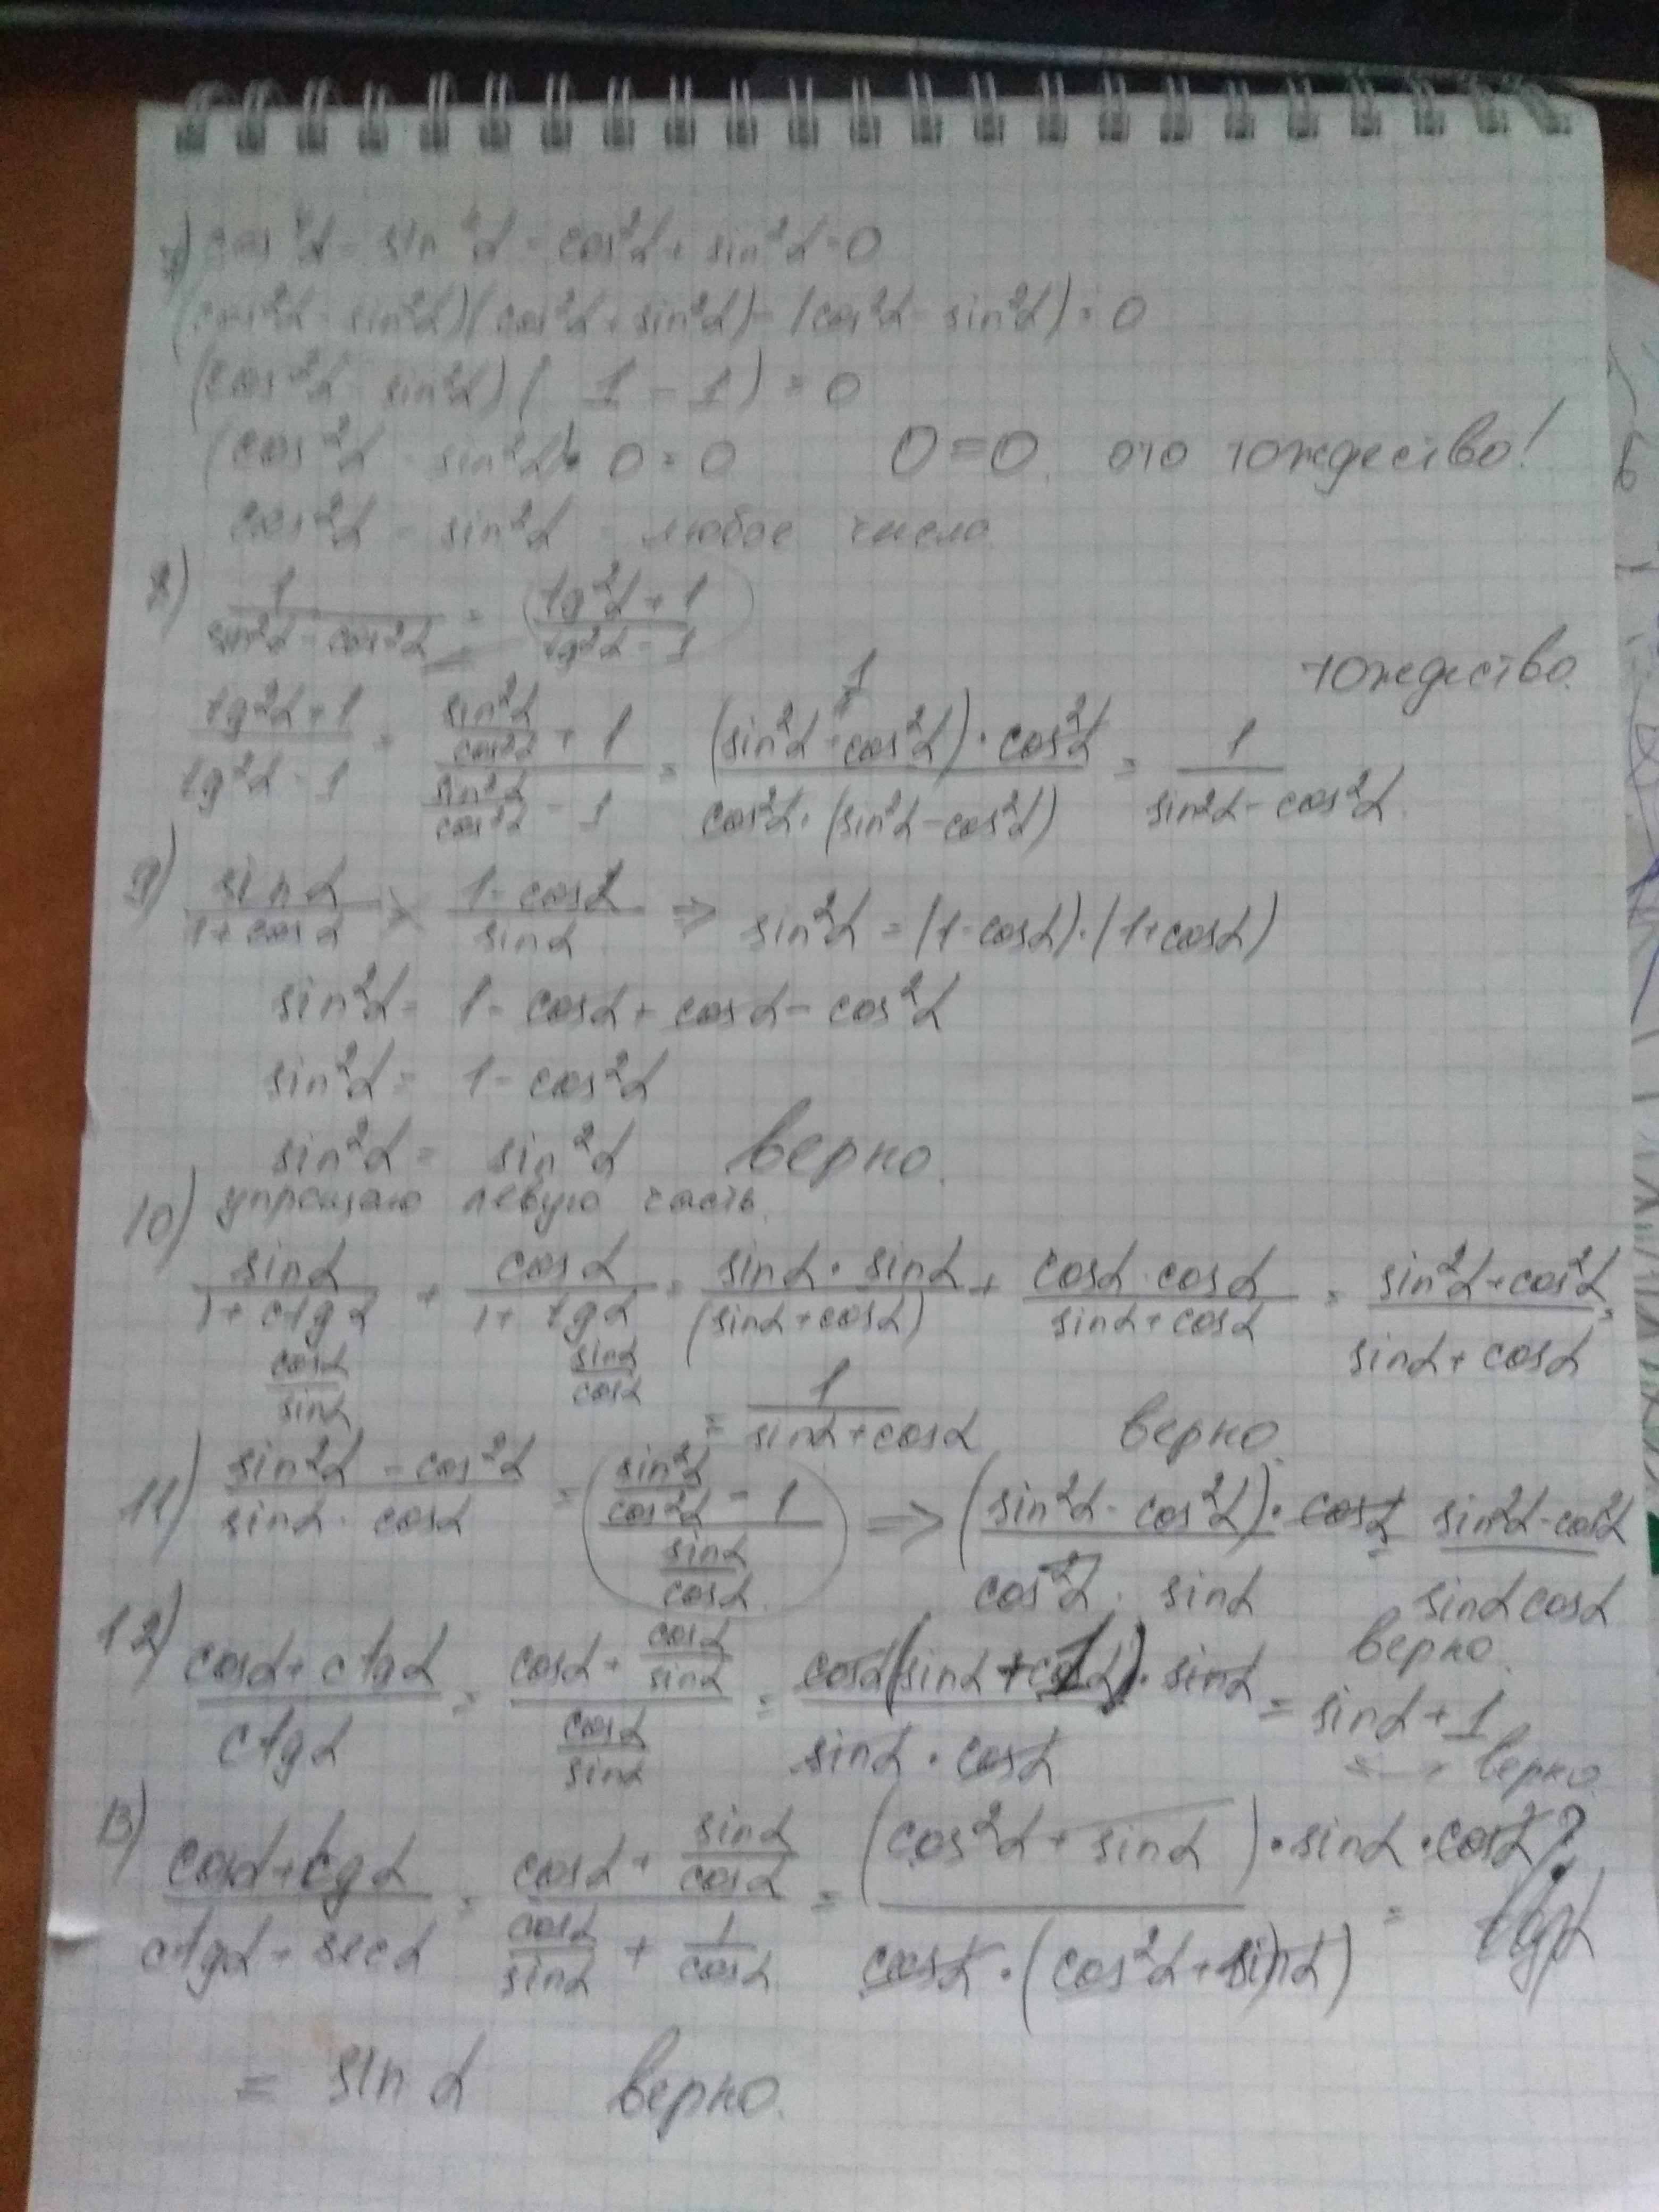 7) cos⁴α - sin⁴α - cos²α + sin²α = 0
(cos²α - sin²α)(cos²α + sin²α) - (cos²α - sin²α) = 0
(cos²α - sin²α)(1 - 1) = 0
(cos²α - sin²α)·0 = 0 0 = 0 это тождество!
cos²α - sin²α - любое число
8) 1/(sin²α - cos²α) = (tg²α + 1)/(tg²α - 1)
тождество.
(tg²α + 1)/(tg²α - 1) = (sin²α/cos²α + 1)/(sin²α/cos²α - 1) = ((sin²α + cos²α)·cos²α)/(cos²α·(sin²α - cos²α)) = 1/(sin²α - cos²α)
9) sinα/(1 + cosα) = (1 - cosα)/sinα ⇒ sin²α = (1 - cosα)·(1 + cosα)
sin²α = 1 - cosα + cosα - cos²α
sin²α = 1 - cos²α
sin²α = sin²α верно.
10) упрощаю левую часть.
sinα/(1 + ctgα) + cosα/(1 + tgα) = sinα·sinα/(sinα + cosα) + cosα·cosα/(sinα + cosα) = (sin²α + cos²α)/(sinα + cosα) =
cosα/sinα sinα/cosα
= 1/(sinα + cosα) верно.
11) (sin²α - cos²α)/(sinα·cosα) = (sin²α/cos²α - 1)/(sinα/cosα) ⇒ ((sin²α - cos²α)·cosα)/(cos²α·sinα) = (sin²α - cos²α)/(sinα cosα)
верно.
12) (cosα + ctgα)/ctgα = (cosα + cosα/sinα)/(cosα/sinα) = (cosα(sinα + 1)·sinα)/(sinα·cosα) = sinα + 1
верно.
13) (cosα + tgα)/(ctgα + secα) = (cosα + sinα/cosα)/(cosα/sinα + 1/cosα) = ((cos²α + sinα)·sinα·cosα)/(cosα·(cos²α + sinα)) =
= sinα верно.